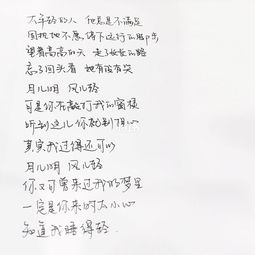 大年轻的人 他总是不满足
固执地不愿停下远行的脚步
望着高高的天 走了长长的路
忘了回头看 她有没有哭
月儿明 风儿轻
可是你在敲打我的窗棂
听到这儿你就别担心
其实我过得还可以
月儿明 风儿轻
你又可曾来过我的梦里
一定是你来时太小心
知道我睡得轻